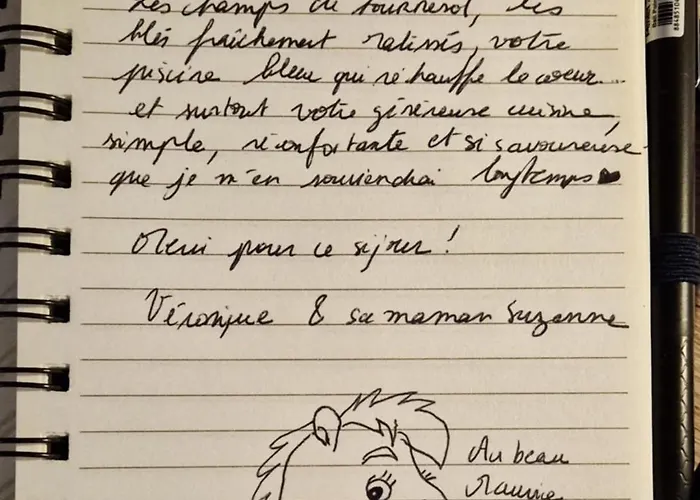 les champs de tournesol, les
blés fraîchement ratissés, votre
piscine bleue qui réchauffe le coeur...
et surtout votre généreuse cuisine,
simple, réconfortante et si savoureuse
que je m'en souviendrai longtemps
Merci pour ce séjour !
Véronique & sa maman Suzanne
Au beau